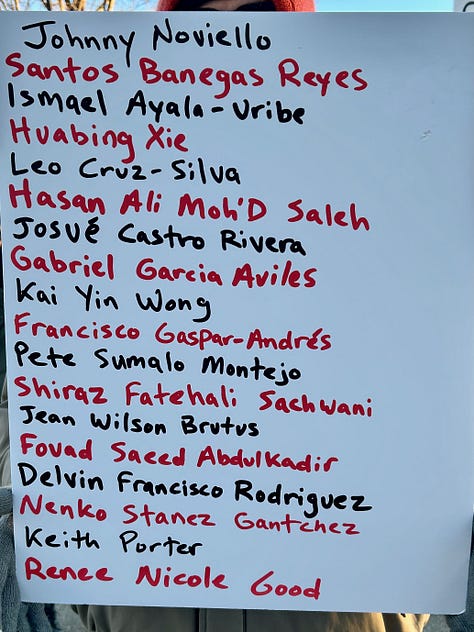 Johnny Noviello
Santos Banegas Reyes
Ismael Ayala-Uribe
Huabing Xie
Leo Cruz-Silva
Hasan Ali Moh'D Saleh
Josué Castro Rivera
Gabriel Garcia Aviles
Kai Yin Wong
Francisco Gaspar-Andrés
Pete Sumalo Montejo
Shiraz Fatehali Sachwani
Jean Wilson Brutus
Fouad Saeed Abdulkadir
Delvin Francisco Rodriguez
Nenko Stanez Gantchez
Keith Porter
Renee Nicole Good